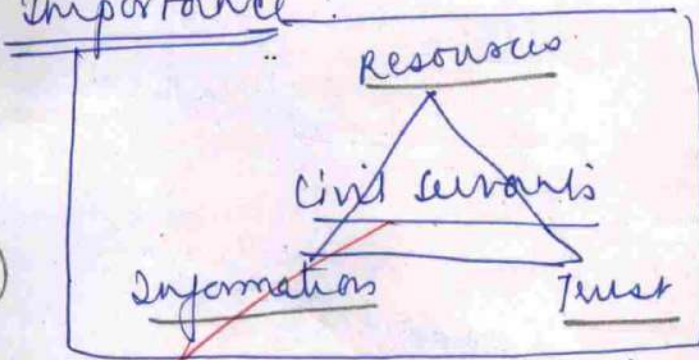 Importance
Resources
Civil Servants
Information Trust